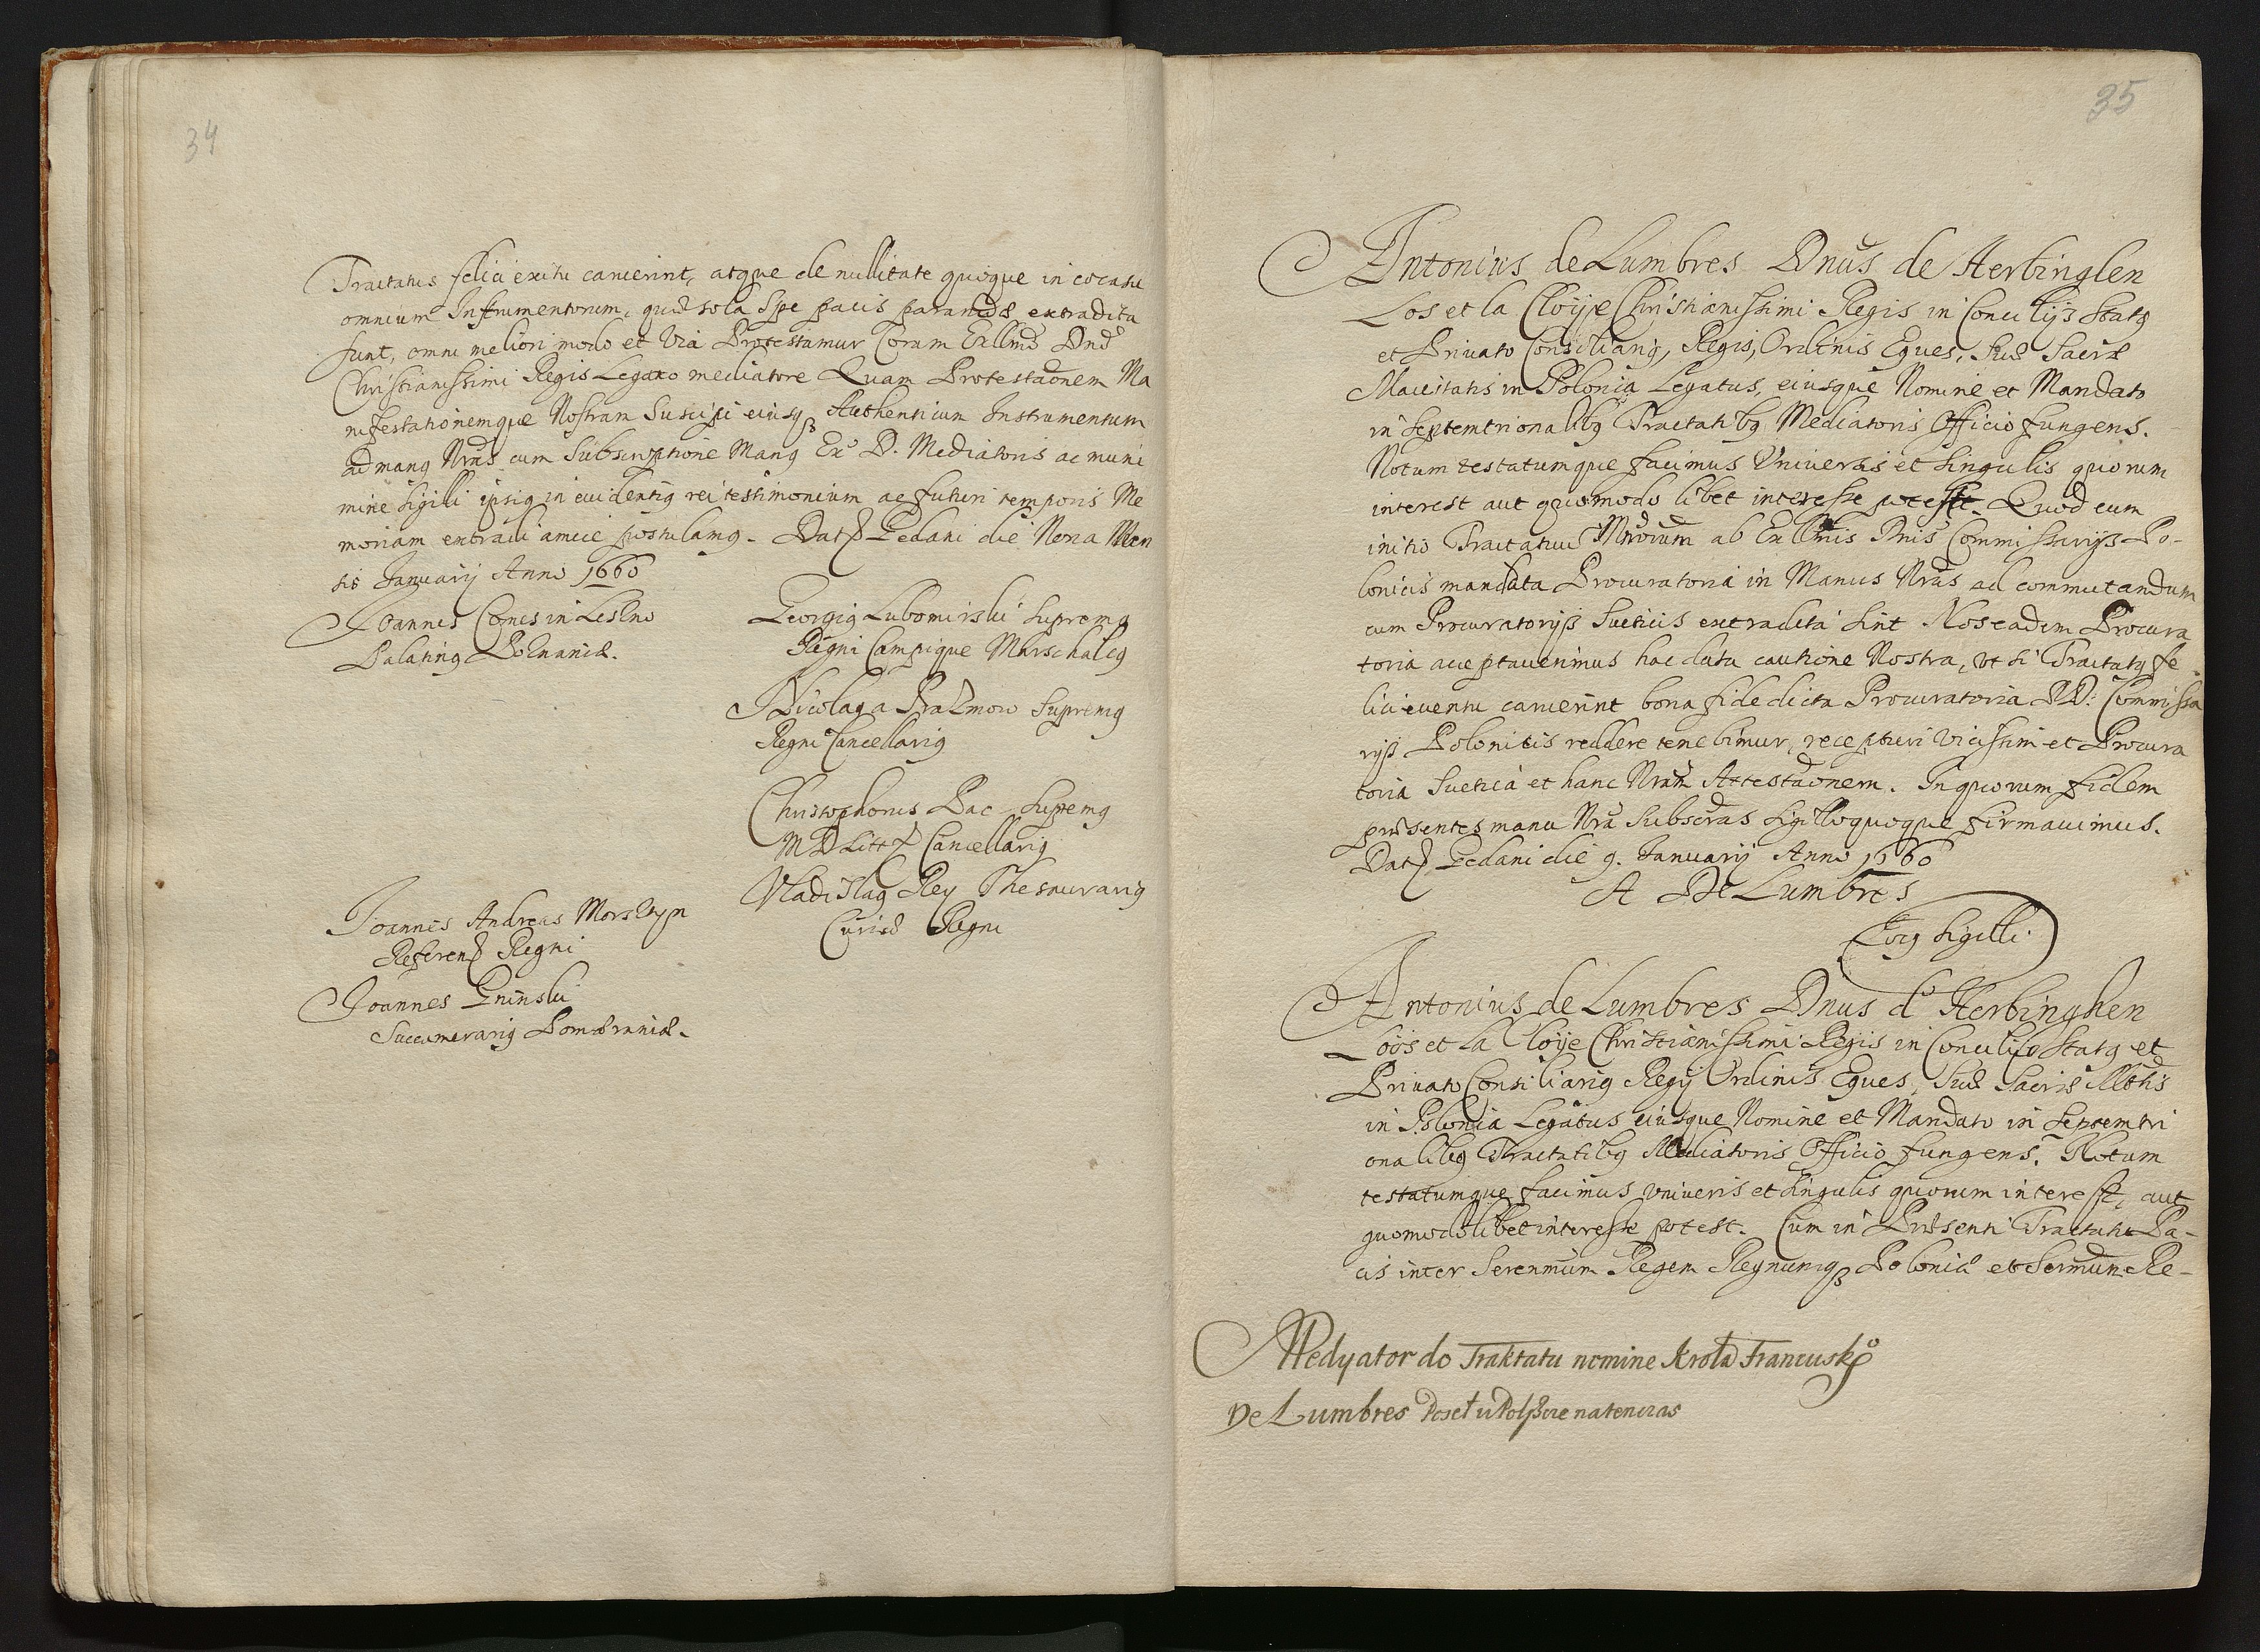 34
Tractatus felici exitu caruerint, atque de nullitate quoque in eo casu
omnium Instrumentorum, quæ sola spe pacis parandæ extradita
sunt, omni meliori modo et via Protestamur Coram Exllmo Dno
Christianissimi Regis Legato mediatore Quam Protestaonem Ma
nifestationemque Nostram Suscipi eiusq Authenticum Instrumentum
ad manq Nras cum Subscriptione Manq Ex D. Mediatoris ac muni
mine Sigilli ipsiq in euidentiq rei testimonium ac futuri temporis Me
moriam extradi amice postulamq. Dat Gedani die Nona Men
sis Januarij Anno 1660
Joannes Comes in Leszno
Palatinq Posnaniæ.
Georgiq Lubomirski Supremq
Regni Campique Marschalcq
Nicolaq a Prazmow Supremq
Regni Cancellariq
Christophorus Pac Supremq
M D Litt Cancellariq
Vladislaq Rey Thesaurariq
Curiæ Regni
Joannes Andreas Morsztyn
Referen Regni
Joannes Gninski
Succamerariq Pomeraniæ.
35
Antonius de Lumbres Dnus de Herbinglen
Los et la Cloije Christianissimi Regis in Concilijs Statq
et Priuato Consiliariq, Regis, Ordinis Eques, Suæ Sacræ
Maiestatis in Polonia Legatus, eiusque Nomine et Mandato
in Septemtrionalibq Tractatibq Mediatoris Officio fungens.
Notum testatumque facimus Vniuersis et singulis quorum
interest aut quomodo libet interesse potest. Quod cum
initio Tractatuu Mnorum ab Exllmis Dnis Commissarijs Po-
lonicis mandata Procuratoria in Manus Nras ad commutandum
cum Procuratorijs Sueticis extradita sint Nos eadem Procura
toria acceptauerimus hac data cautione Nostra, vt si Tractatq fe
lici euentu caruerint bona fide dicta Procuratoria DD: Commissa
rijs Polonicis reddere tenebimur, recepturi vicissim et Procura
toria Suetica et hanc Nram Attestaonem. In quorum fidem
præsentes manu Nra Subscras sigilloquoque firmauimus.
Dat Gedani die 9. Januarij Anno 1660
A De Lumbres
Locq Sigilli
Antonius de Lumbres Dnus d Herbinghen
Loos et La Cloije Christianissimi Regis in Concilijs Statq et
Priuato Consiliariq Regij Ordinis Eques, Suæ Sacræ Mttis
in Polonia Legatus eiusque Nomine et Mandato in Septemtri
onalibq Tractatibq Mediatoris Officio fungens. Notum
testatumque facimus vniueris et singulis quorum interest, aut
quomodolibet interesse potest. Cum in Præsenti Tractatu Pa-
cis inter Serenmum Regem Regnumq Poloniæ et Sermum Re-
Medyator do Traktatu nomine Krola Francusko
De Lumbres Poseł v Polszcze natenczas